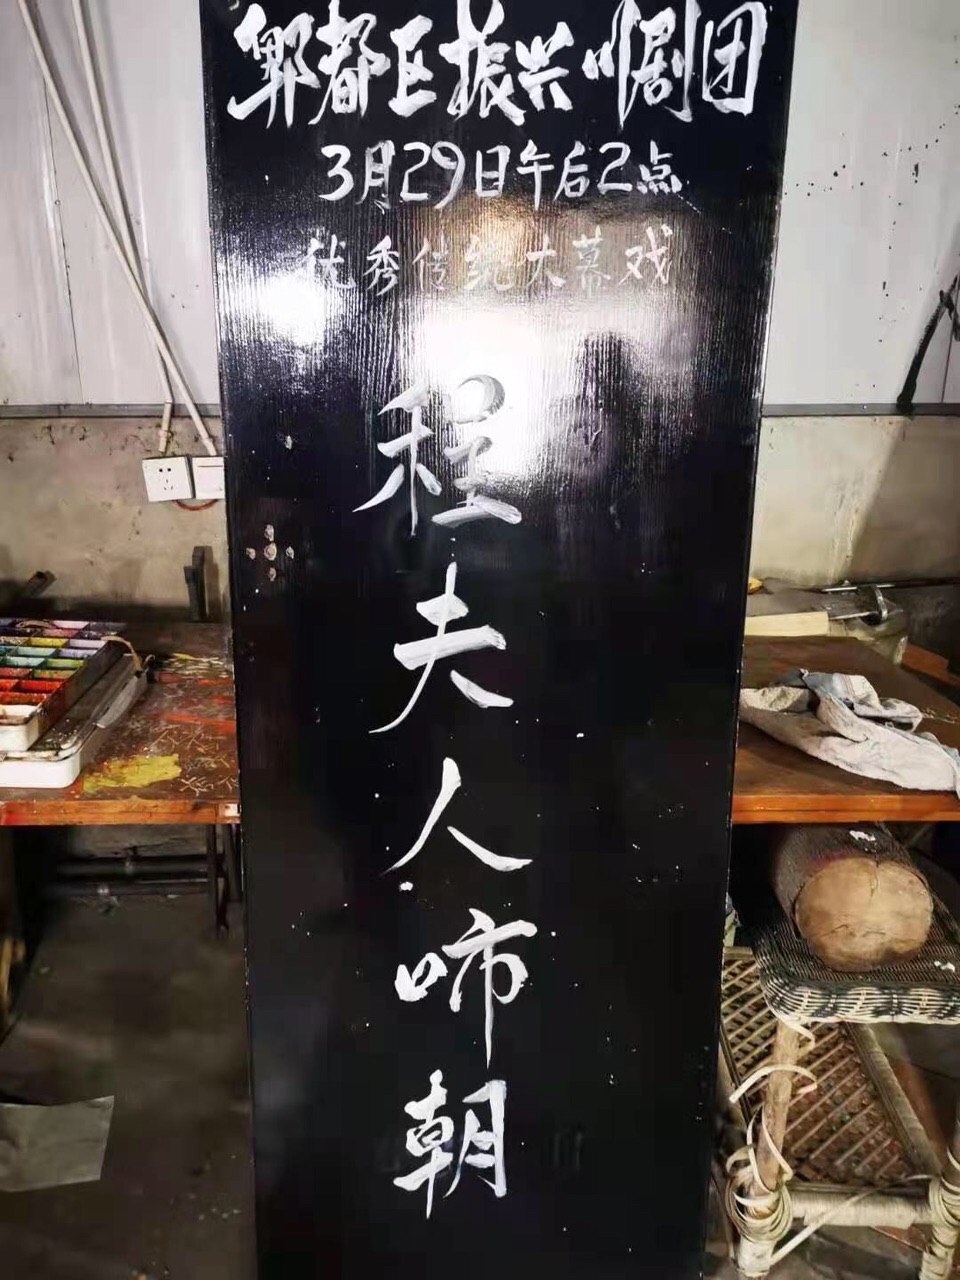 郫都区振兴川剧团
3月29日午后2点
优秀传统大幕戏
程夫人㖊朝